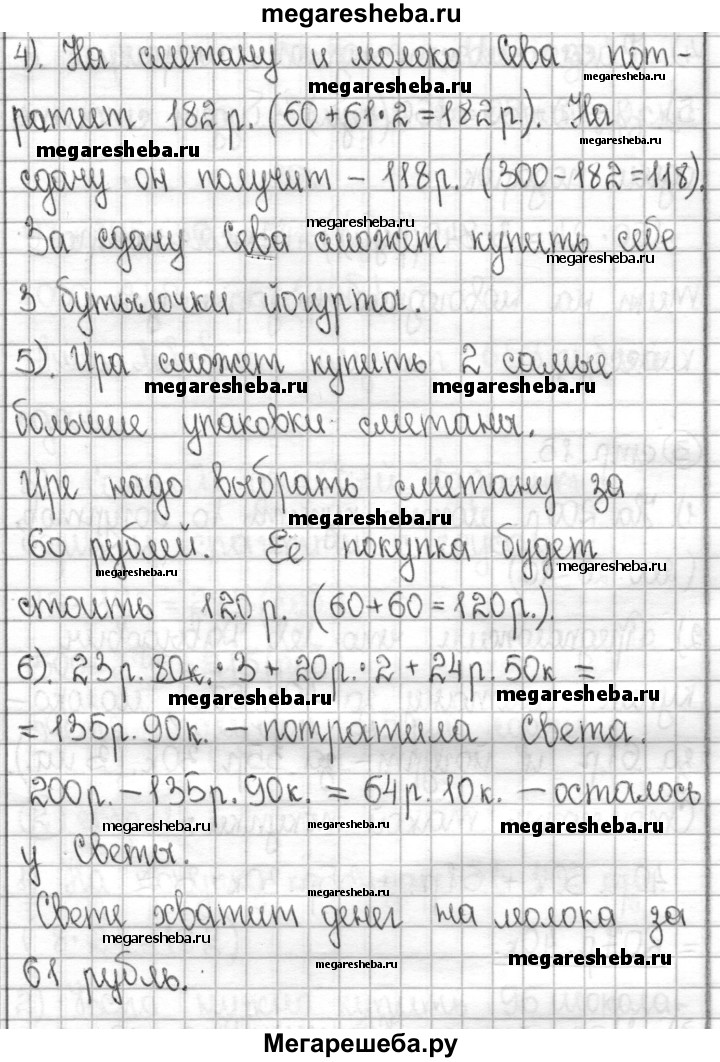 megaresheba.ru
4). На сметану и молоко Сева пот-
megaresheba.ru megaresheba.ru
ратит 182 р. (60+61·2=182р.). На
megaresheba.ru
сдачу он получит – 118р. (300–182=118).
megaresheba.ru
За сдачу Сева сможет купить себе
megaresheba.ru
3 бутылочки йогурта.
5). Ира сможет купить 2 самые
megaresheba.ru megaresheba.ru
большие упаковки сметаны.
Ире надо выбрать сметану за
megaresheba.ru
60 рублей. Её покупка будет
megaresheba.ru
стоить 120р. (60+60=120р.).
6). 23р.80к.·3+20р.·2+24р.50к =
megaresheba.ru megaresheba.ru
=135р.90к. – потратила Света.
200р.–135р.90к.=64р.10к. – осталось
megaresheba.ru megaresheba.ru megaresheba.ru
у Светы.
megaresheba.ru
Свете хватит денег на молока за
megaresheba.ru megaresheba.ru
61 рубль.
megaresheba.ru
Мегарешеба.ру